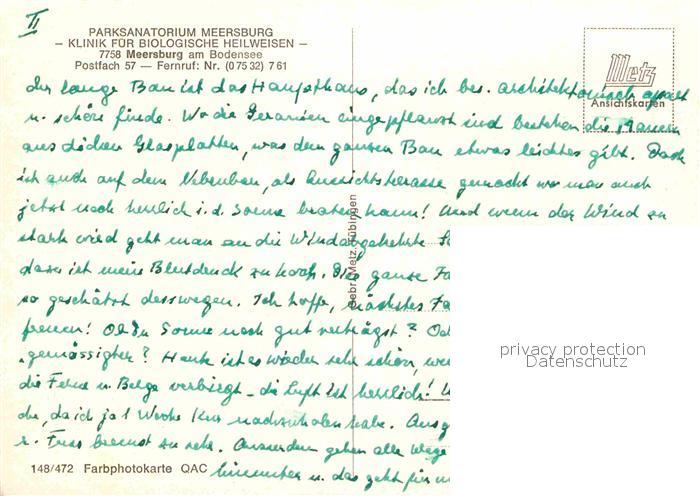 II
PARKSANATORIUM MEERSBURG
– KLINIK FÜR BIOLOGISCHE HEILWEISEN –
7758 Meersburg am Bodensee
Postfach 57 — Fernruf: Nr. (0 75 32) 7 61
Metz
Ansichtskarten
der lange Bau ist das Haupthaus, das ich bes. architektonisch apart
u. schön finde. Wo die Geranien eingepflanzt sind bestehen die Mauern
aus dicken Glasplatten, was dem ganzen Bau etwas leichtes gibt. Dach
ist auch auf dem Nebenbau, als Aussichtsterasse gemacht wo man auch
jetzt noch herrlich i. d. Sonne braten kann! Und wenn der Wind zu
stark wird geht man an die Windabgekehrte
dazu ist mein Blutdruck zu hoch. Die ganze
so geschätzt desswegen. Ich hoffe, nächstes
freuen! Ob Du Sonne noch gut verträgst?
"gemässigter"? Heute ist es wieder sehr schön,
die Ferne u. Berge verbirgt – die Luft ist herrlich!
che, da ich ja 1 Woche Kur nachzuholen habe.
r. Fuss brennt zu sehr. Ausserdem gehen alle Wege
hinunter u. das geht für
Gebr. Metz, Tübingen
148/472 Farbphotokarte QAC
privacy protection
Datenschutz